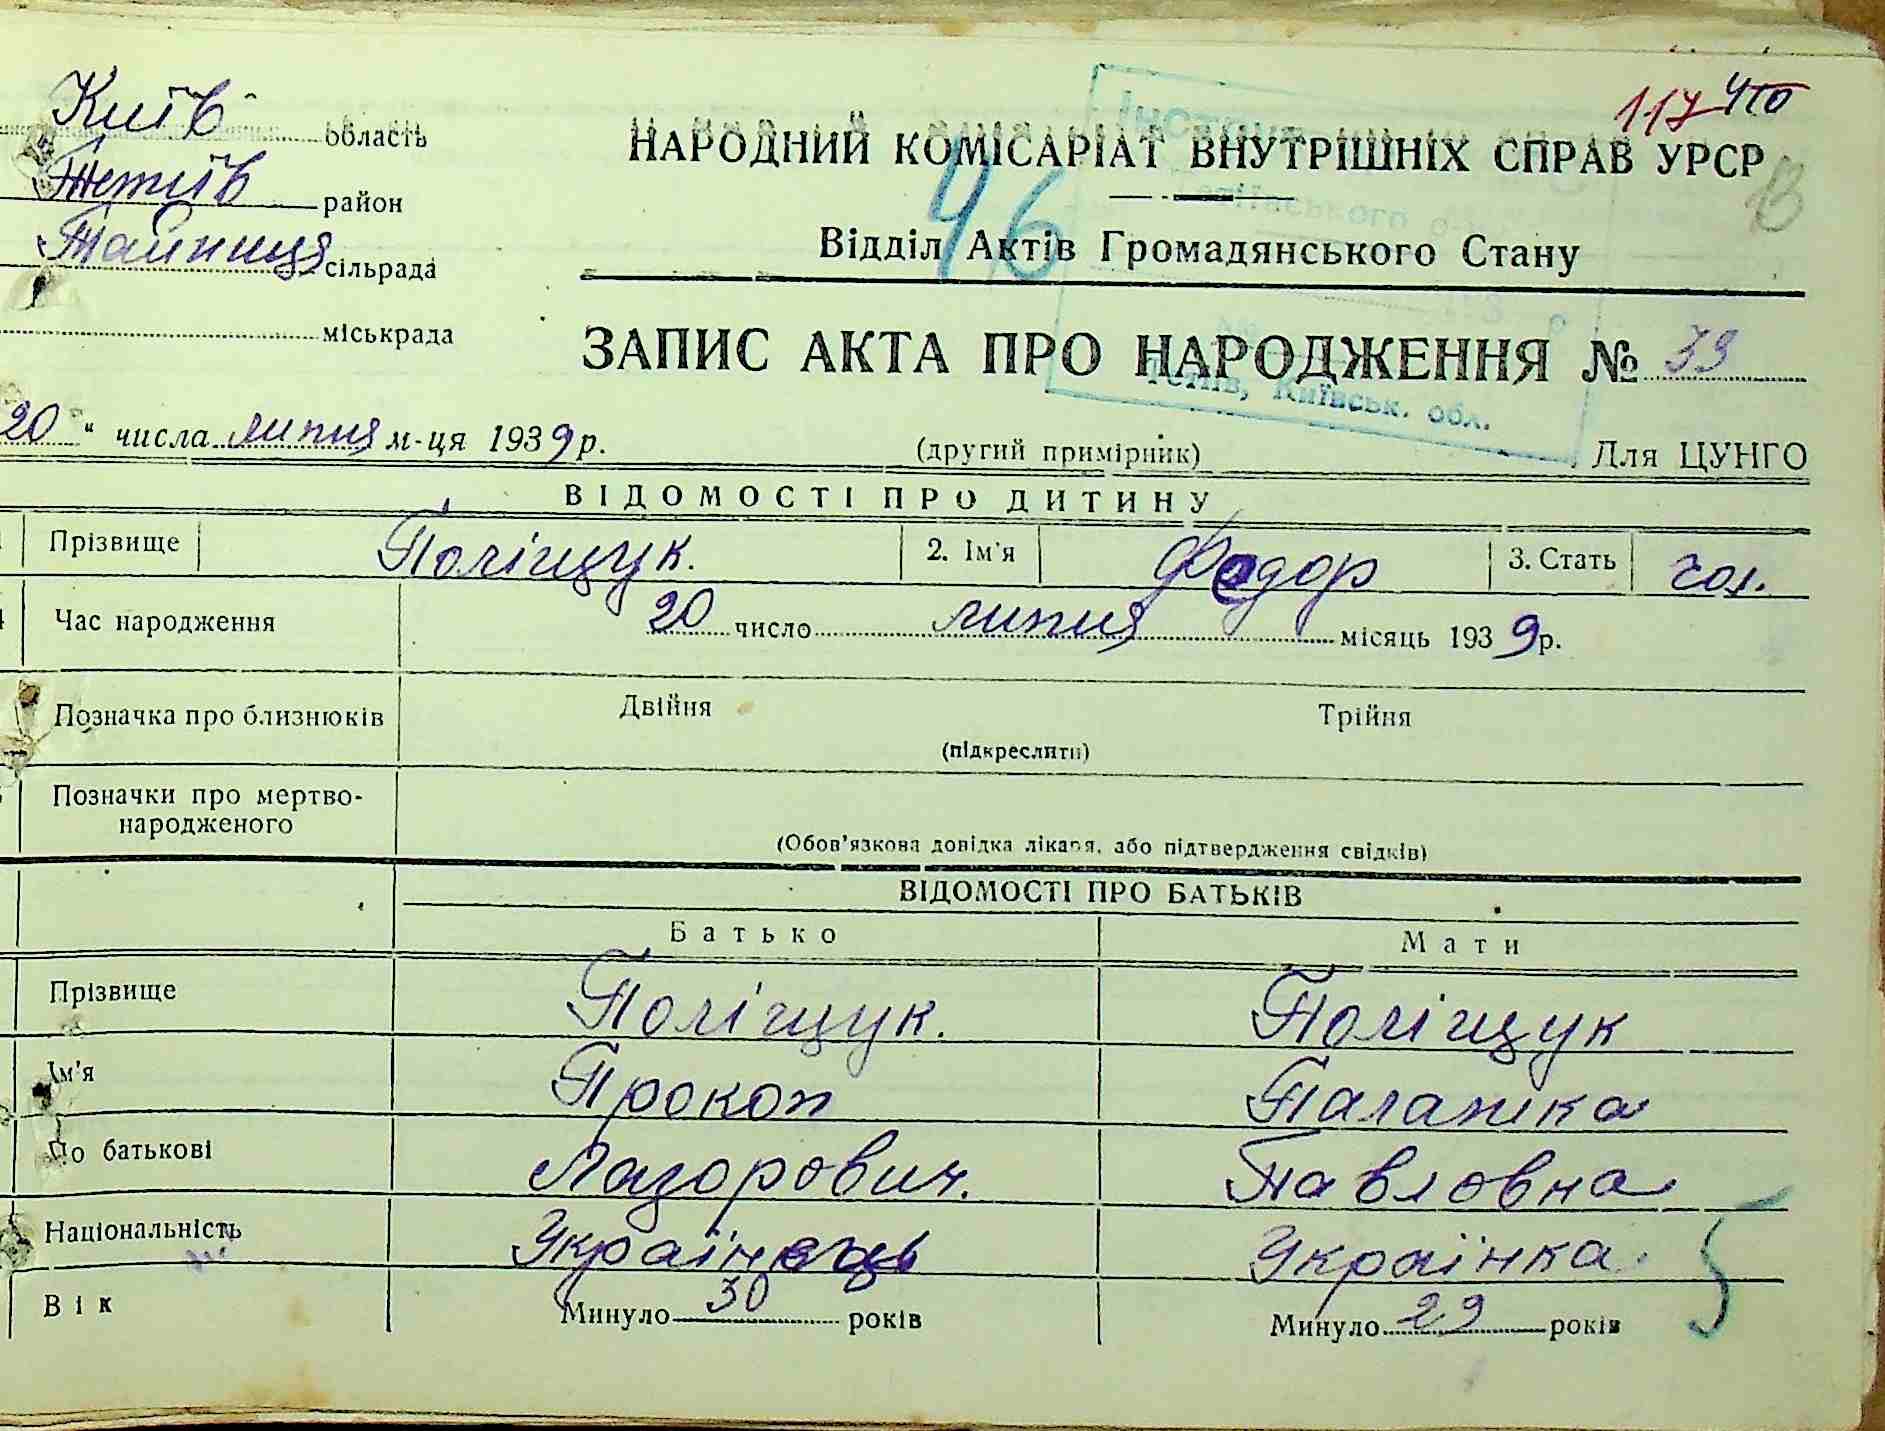 117 410
Київ область
НАРОДНИЙ КОМІСАРІАТ ВНУТРІШНІХ СПРАВ УРСР
Тетіїв район
46
В
Тайниця сільрада
Відділ Актів Громадянського Стану
міськрада
ЗАПИС АКТА ПРО НАРОДЖЕННЯ № 39
Тетіїв, Київськ. обл.
20 " числа липня м-ця 1939 р.
(другий примірник)
Для ЦУНГО
ВІДОМОСТІ ПРО ДИТИНУ
Прізвище Поліщук. 2. Ім'я Федор 3. Стать чол.
Час народження 20 число липня місяць 1939 р.
Позначка про близнюків Двійня Трійня
(підкреслити)
Позначки про мертво-
народженого
(Обов'язкова довідка лікаря, або підтвердження свідків)
ВІДОМОСТІ ПРО БАТЬКІВ
Батько Мати
Прізвище Поліщук. Поліщук
Ім'я Прокоп Палажка
По батькові Лазорович. Павловна
Національність Українець Українка.
Вік Минуло 30 років Минуло 29 років
5